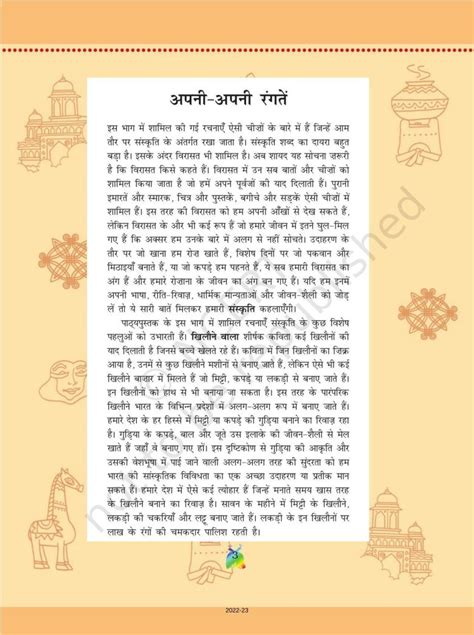 अपनी-अपनी रंगतें
इस भाग में शामिल की गई रचनाएँ ऐसी चीज़ों के बारे में हैं जिन्हें आम
तौर पर संस्कृति के अंतर्गत रखा जाता है। संस्कृति शब्द का दायरा बहुत
बड़ा है। इसके अंदर विरासत भी शामिल है। अब शायद यह सोचना ज़रूरी
है कि विरासत किसे कहते हैं। विरासत में उन सब बातों और चीज़ों को
शामिल किया जाता है जो हमें अपने पूर्वजों की याद दिलाती हैं। पुरानी
इमारतें और स्मारक, चित्र और पुस्तकें, बगीचे और सड़कें ऐसी चीज़ों में
शामिल हैं। इस तरह की विरासत को हम अपनी आँखों से देख सकते हैं,
लेकिन विरासत के और भी कई रूप हैं जो हमारे जीवन में इतने घुल-मिल
गए हैं कि अक्सर हम उनके बारे में अलग से नहीं सोचते। उदाहरण के
तौर पर जो खाना हम रोज़ खाते हैं, विशेष दिनों पर जो पकवान और
मिठाइयाँ बनाते हैं, या जो कपड़े हम पहनते हैं, ये सब हमारी विरासत का
अंग हैं और हमारे रोज़ाना के जीवन का अंग बन गए हैं। यदि हम इनमें
अपनी भाषा, रीति-रिवाज़, धार्मिक मान्यताओं और जीवन-शैली को जोड़
लें तो ये सारी बातें मिलकर हमारी संस्कृति कहलाएँगी।
पाठ्यपुस्तक के इस भाग में शामिल रचनाएँ संस्कृति के कुछ विशेष
पहलुओं को उभारती हैं। खिलौने वाला शीर्षक कविता कई खिलौनों की
याद दिलाती है जिनसे बच्चे खेलते रहे हैं। कविता में जिन खिलौनों का ज़िक्र
आया है, उनमें से कुछ खिलौने मशीनों से बनाए जाते हैं, लेकिन ऐसे भी कई
खिलौने बाज़ार में मिलते हैं जो मिट्टी, कपड़े या लकड़ी से बनाए जाते हैं।
इन खिलौनों को हाथ से भी बनाया जा सकता है। इस तरह के पारंपरिक
खिलौने भारत के विभिन्न प्रदेशों में अलग-अलग रूप में बनाए जाते हैं।
हमारे देश के हर हिस्से में मिट्टी या कपड़े की गुड़िया बनाने का रिवाज़ रहा
है। गुड़िया के कपड़े, बाल और जूते उस इलाके की जीवन-शैली से मेल
खाते हैं जहाँ वे बनाए गए हों। इस दृष्टिकोण से गुड़िया की आकृति और
उसकी वेशभूषा में पाई जाने वाली अलग-अलग तरह की सुंदरता को हम
भारत की सांस्कृतिक विविधता का एक अच्छा उदाहरण या प्रतीक मान
सकते हैं। हमारे देश में ऐसे कई त्योहार हैं जिन्हें मनाते समय खास तरह
के खिलौने बनाने का रिवाज़ है। सावन के महीने में मिट्टी के खिलौने,
लकड़ी की चकरियाँ और लट्टू बनाए जाते हैं। लकड़ी के इन खिलौनों पर
लाख के रंगों की चमकदार पालिश रहती है।
3
2022-23